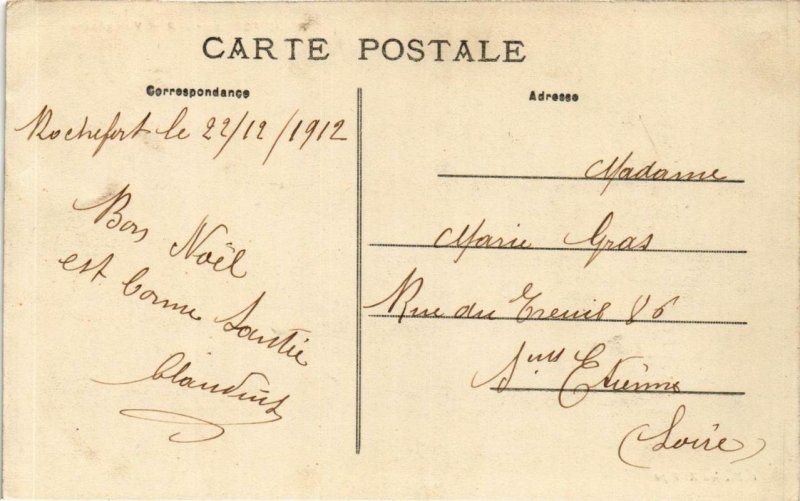 CARTE POSTALE
Correspondance
Rochefort le 22/12/1912
Bon Noël
est bonne Santie
Adresse
Madame
Marie Gras
Rue du Treuil 86
Etienne
(Loire)